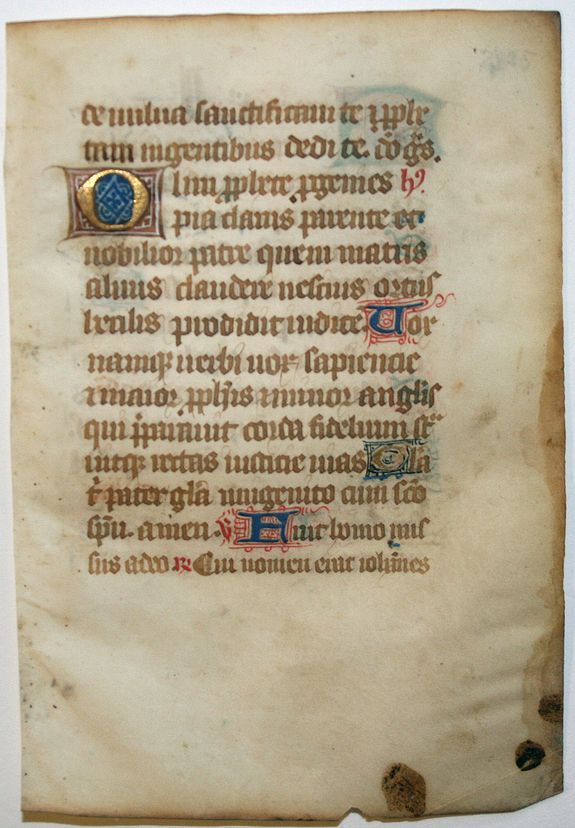 de uulua sanctificaui te ⁊ pphe
tam in gentibus dedi te. do gr̄s.
Olim pphete pgenies hꝰ
pia clarus parente et
nobilior patre quem matris
aluus claudere nescius ortus
herilis prodidit iudice. Vox
namqꝫ uerbi uox sapiencie
⁊ maior pphis ⁊ minor anglis
qui pparauit corda fidelium st
uitqꝫ rectas iusticie uias Gla
t pater gl̄a unigenito cum sc̄o
sp̄u. amen. ℣ Fuit homo mis
sus a deo ℟ Cui nomen erat ioh̄nes